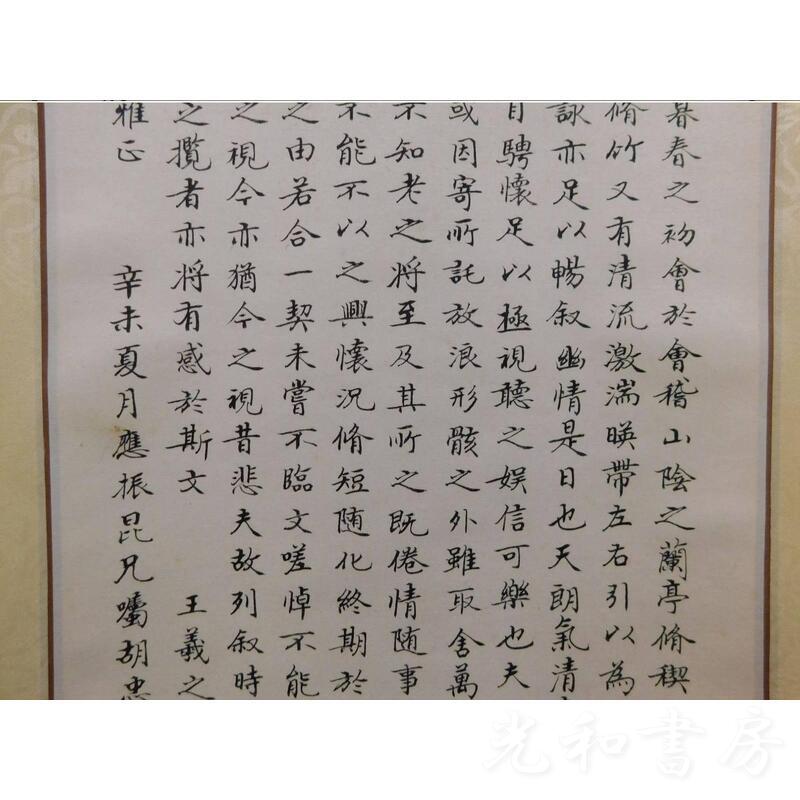 暮春之初會於會稽山陰之蘭亭脩稧
脩竹又有清流激湍暎帶左右引以為
詠亦足以暢叙幽情是日也天朗氣清
目騁懷足以極視聽之娱信可樂也夫
或因寄所託放浪形骸之外雖取舍萬
不知老之將至及其所之既倦情随事
不能不以之興懷況脩短随化終期於
之由若合一契未嘗不臨文嗟悼不能
之視今亦猶今之視昔悲夫故列叙時
之攬者亦將有感於斯文 王羲之
雅正 辛未夏月應振昆兄囑胡忠
光和書房